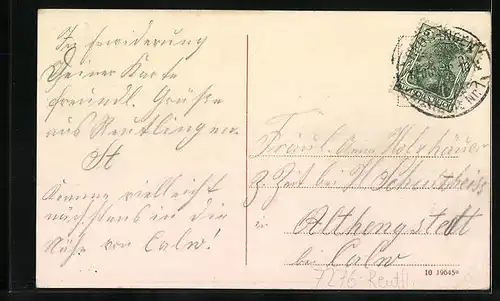 In Erwiderung
Deiner Karte
freundl. Grüße
aus Reutlingen.
St
Komme vielleicht
nächstens in die
Nähe von Calw!
Fräul. Anna Holzhäuer
z. Zeit bei H. Schultheiss
in Althengstedt
bei Calw
7276 Reutl
10 19045*